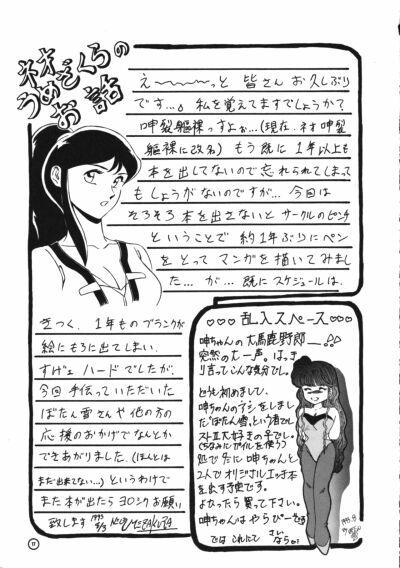 ネオ
うめざくらの
お話
え〜〜〜〜っと 皆さん お久しぶり
です…。私を覚えてますでしょうか?
呻裂軀裸っすよぉ…(現在、ネオ呻裂
軀裸に改名) もう既に1年以上も
本を出してないので忘れられてしまって
もしょうがないのですが… 今回は
そろそろ本を出さないと サークルのピンチ
ということで 約1年ぶりにペン
をとって マンガを描いてみまし
た…が… 既にスケジュールは、
きつく、1年ものブランクが
絵にもろに出てしまい、
すげェ ハードでしたが、
今回手伝っていただいた
ぼたん雪さんや他の方の
応援のおかげでなんとか
できあがりました。(ほんとは
まだ出来てない…) というわけで
また本が出たらヨロシクお願い
致します 1995 8/3
♡♡♡ 乱入スペース ♡♡♡
呻ちゃんの大馬鹿野郎──!!
突然の大一声。はっき
り言ってこんな気分でし。
どうも初めまして、
呻ちゃんのアシをしまし
た"ぼたん雪"という者でし
ストⅡ大好きの子でし。
(ちなみにガイルを使う)
処でたに呻ちゃんと
2人でオリジナルエッチ本
を出す予定です。
よかったら買って下さい。
呻ちゃんはやらぴーです
では これにて さい
ならっ。
1995.8
17